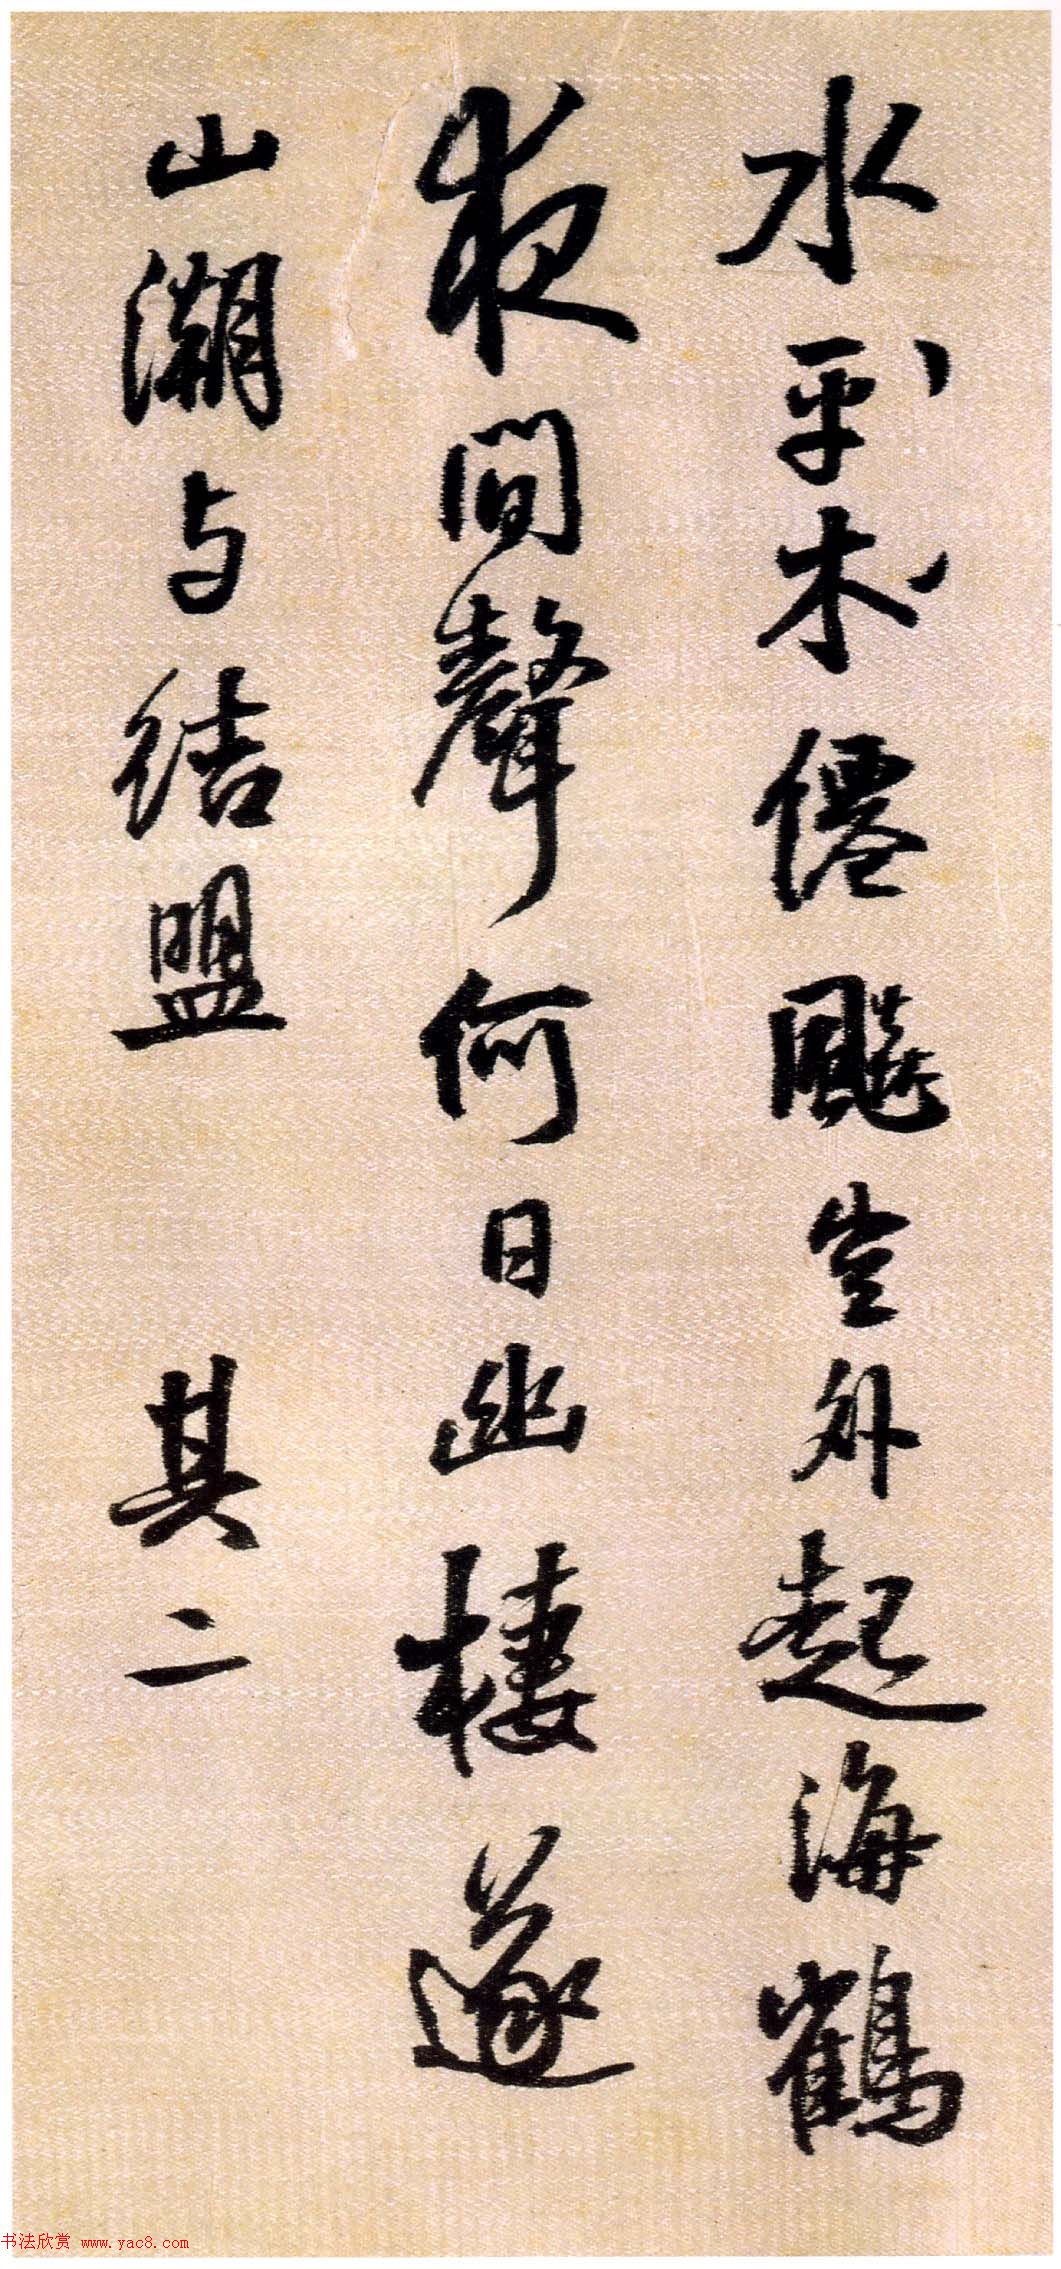 水平木僊飈空外起海鶴
夜間聲何日幽棲遂
山湖与結盟 其二
书法欣赏 www.yac8.com